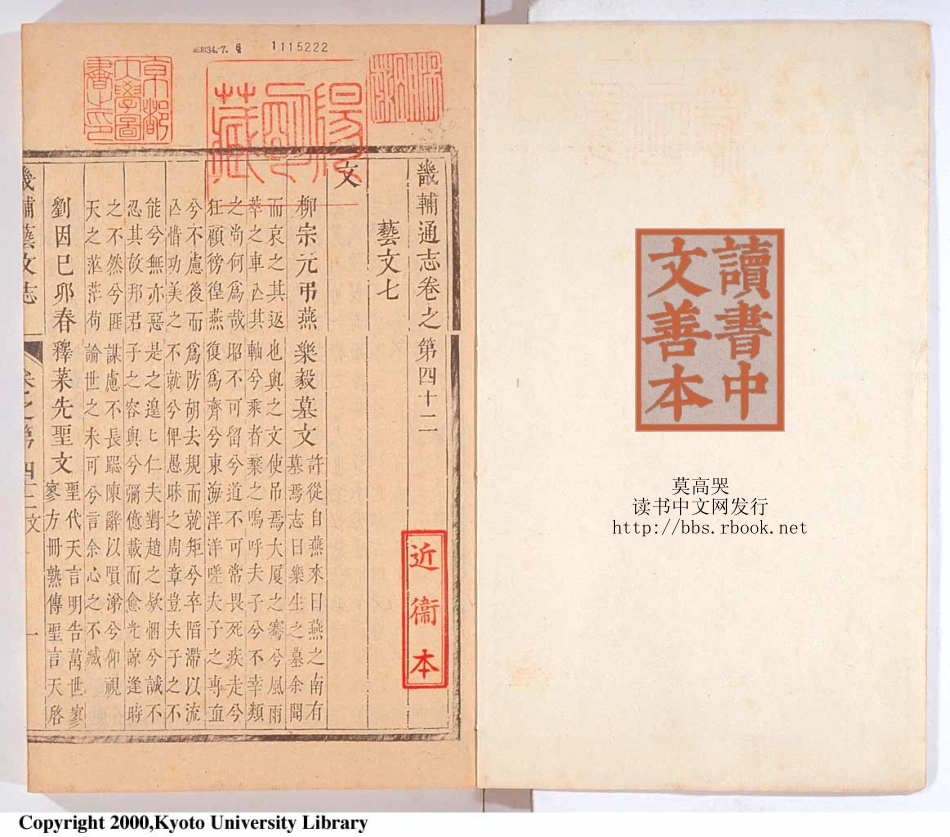 讀書中
文善本
莫高哭
读书中文网发行
http://bbs.rbook.net
1115222
京都
大學圖
書之印
陽明藏
近衞本
畿輔通志卷之第四十二
藝文七
文
柳宗元弔燕樂毅墓文
許從自燕來曰燕之南有
墓焉志曰樂生之墓余聞
而哀之其返也與之文使吊焉大厦之騫兮風雨
萃之車亾其軸兮乘者棄之嗚呼夫子兮不幸類
之尚何爲哉昭不可留兮道不可常畏死疾走兮
狂顧徬徨燕復爲齊兮東海洋洋嗟夫子之專直
兮不慮後而爲防胡去規而就矩兮卒陷滯以流
亾惜功美之不就兮俾愚昧之周章豈夫子之不
能兮無亦惡是之遑匕仁夫對趙之欵悃兮誠不
忍其故邦君子之容與兮彌億載而愈光諒逢時
之不然兮匪謀慮不長跽陳辭以隕涕兮仰視
天之茫茫苟論世之未可兮言余心之不臧
劉因己卯春釋菜先聖文
聖代天言明告萬世寥
寥方冊熟傳聖言天啓
畿輔藝文志
卷之第四十二文
一
Copyright 2000,Kyoto University Library